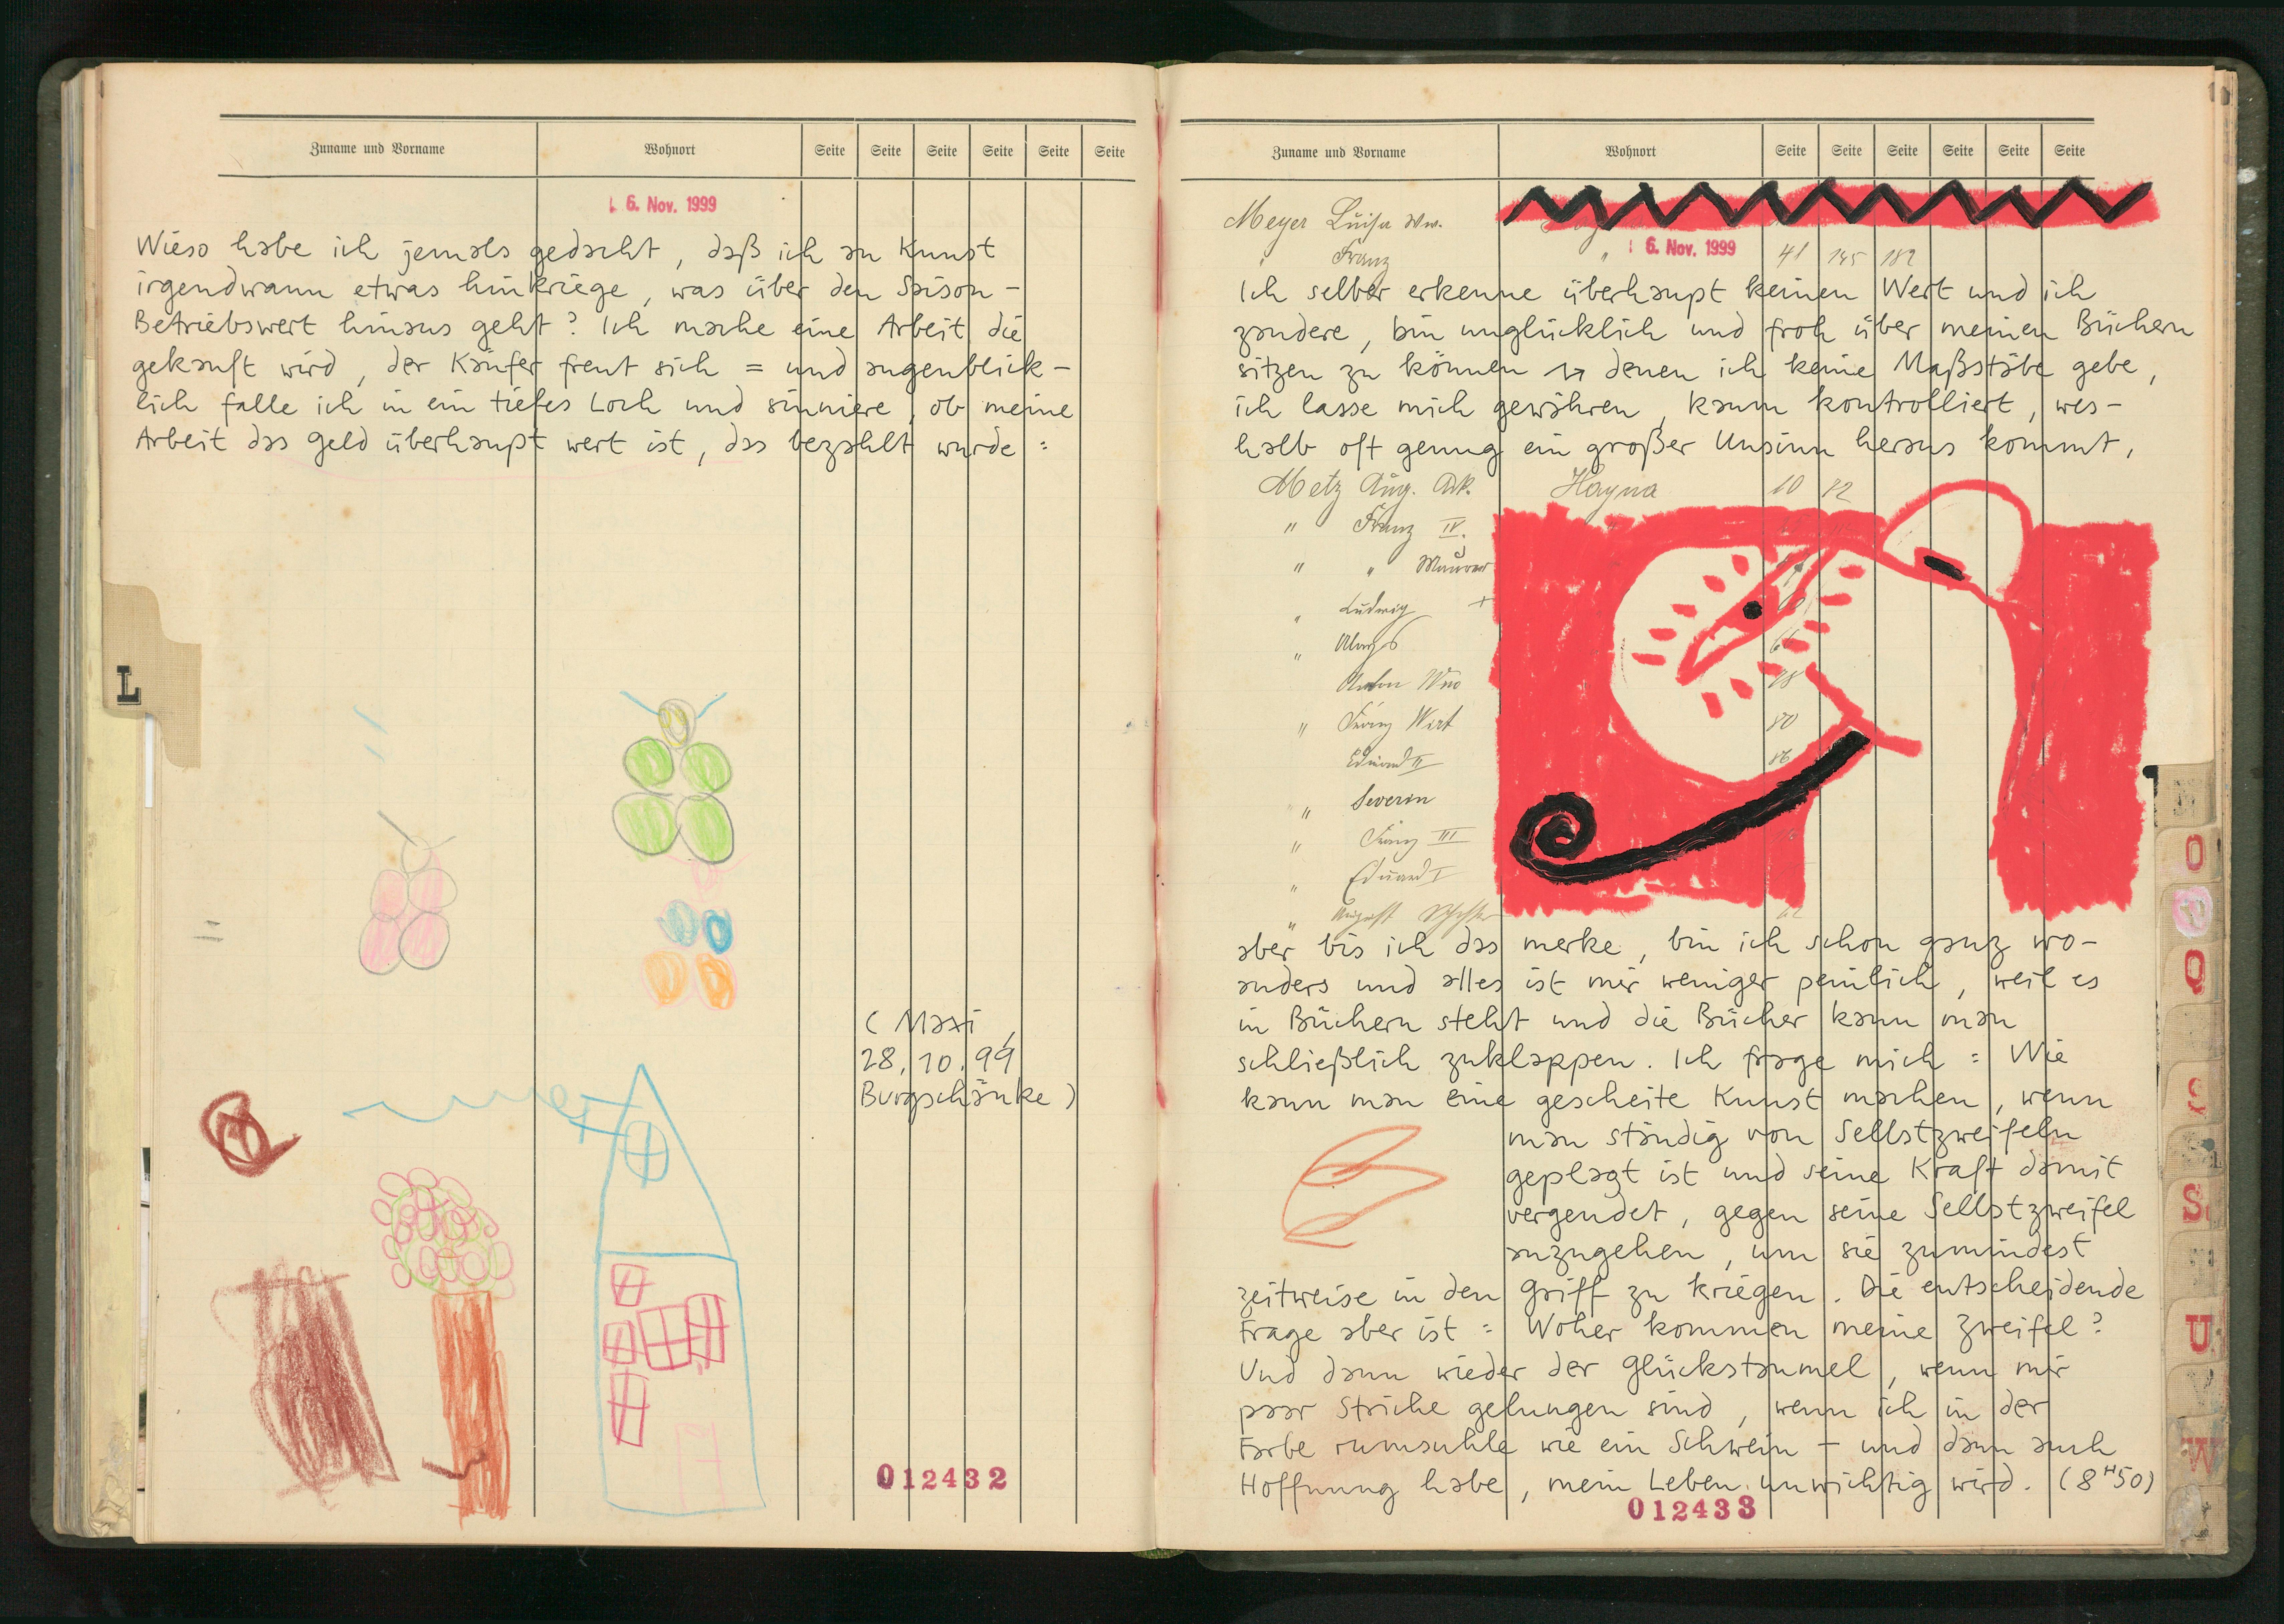 Zuname und Vorname Wohnort Seite Seite Seite Seite Seite Seite
6. Nov. 1999
Wieso habe ich jemals gedacht, daß ich an Kunst
irgendwann etwas hinkriege, was über den Saison-
Betriebswert hinaus geht? Ich mache eine Arbeit die
gekauft wird, der Käufer freut sich = und augenblick-
lich falle ich in ein tiefes Loch und sinniere, ob meine
Arbeit das Geld überhaupt wert ist, das bezahlt wurde =
L
(Maxi,
28.10.99
Burgschänke)
012432
Zuname und Vorname Wohnort Seite Seite Seite Seite Seite Seite
Meyer Luisa Ww.
" Franz " 6. Nov. 1999 41 145 182
Ich selber erkenne überhaupt keinen Wert und ich
zaudere, bin unglücklich und froh über meinen Büchern
sitzen zu können → denen ich keine Maßstäbe gebe,
ich lasse mich gewähren, kaum kontrolliert, wes-
halb oft genug ein großer Unsinn heraus kommt,
Metz Aug. Ack. Hayna 10 82
" Franz IV.
" "
" Ludwig +
"
" Franz Wirt 80
Eduard II 86
" Severin
" Franz III
" Eduard I
" August
aber bis ich das merke, bin ich schon ganz wo-
anders und alles ist mir weniger peinlich, weil es
in Büchern steht und die Bücher kann man
schließlich zuklappen. Ich frage mich = Wie
kann man eine gescheite Kunst machen, wenn
man ständig von Selbstzweifeln
geplagt ist und seine Kraft damit
vergendet, gegen seine Selbstzweifel
anzugehen, um sie zumindest
zeitweise in den Griff zu kriegen. Die entscheidende
Frage aber ist = Woher kommen meine Zweifel?
Und dann wieder der Glückstaumel, wenn mir
paar Striche gelungen sind, wenn ich in der
Farbe rumsuhle wie ein Schwein – und dann auch
Hoffnung habe, mein Leben unwichtig wird. (8H50)
012433
O
Q
S
S
U
W